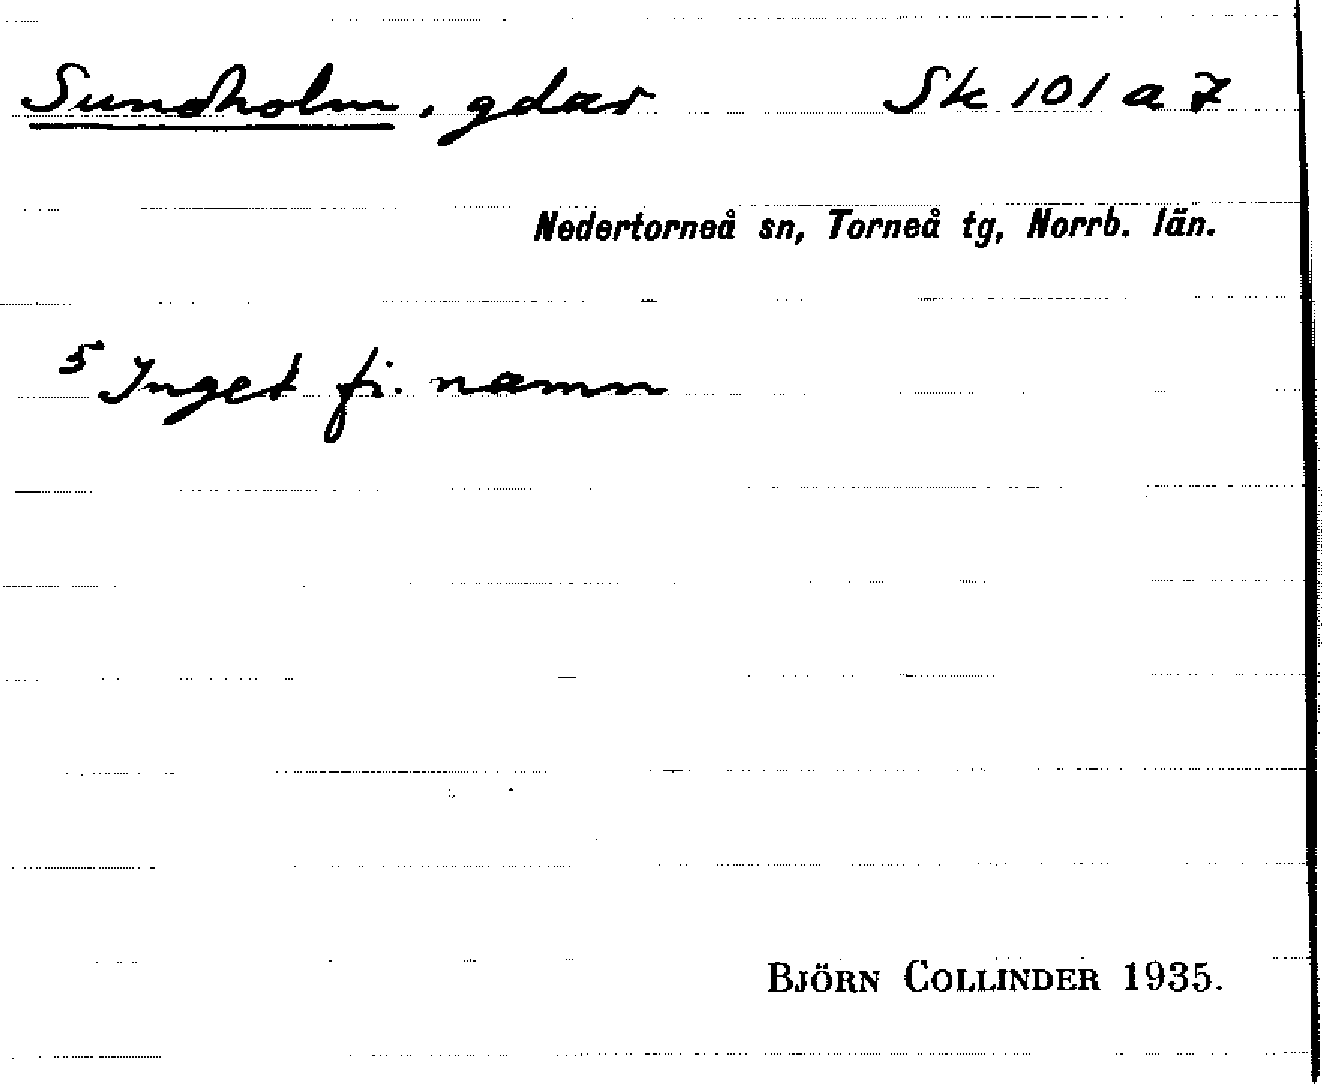 Sundholm, gdar Sk 101 a 7
Nedertorneå sn, Torneå tg, Norrb. län.
5 Inget fi. namn
BJÖRN COLLINDER 1935.